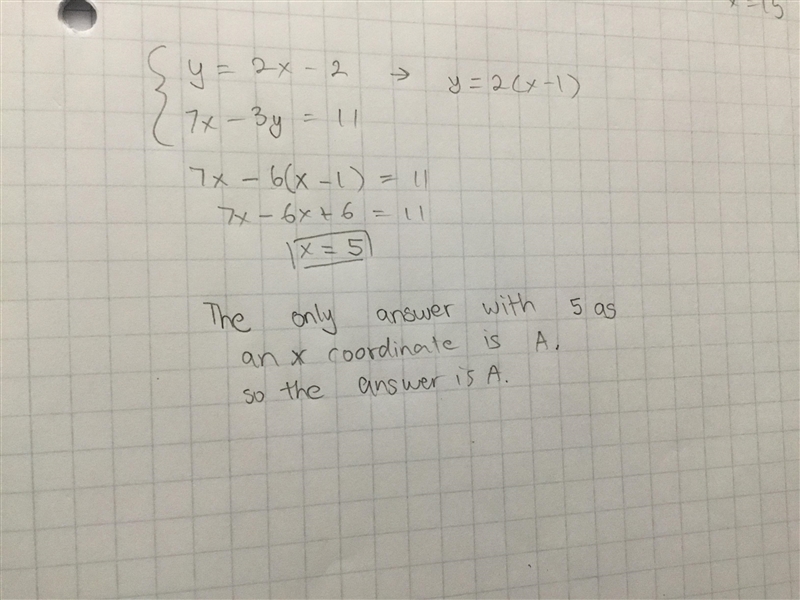 x=15
y = 2x - 2 → y = 2(x-1)
7x - 3y = 11
7x - 6(x - 1) = 11
7x - 6x + 6 = 11
x = 5
The only answer with 5 as
an x coordinate is A.
so the answer is A.